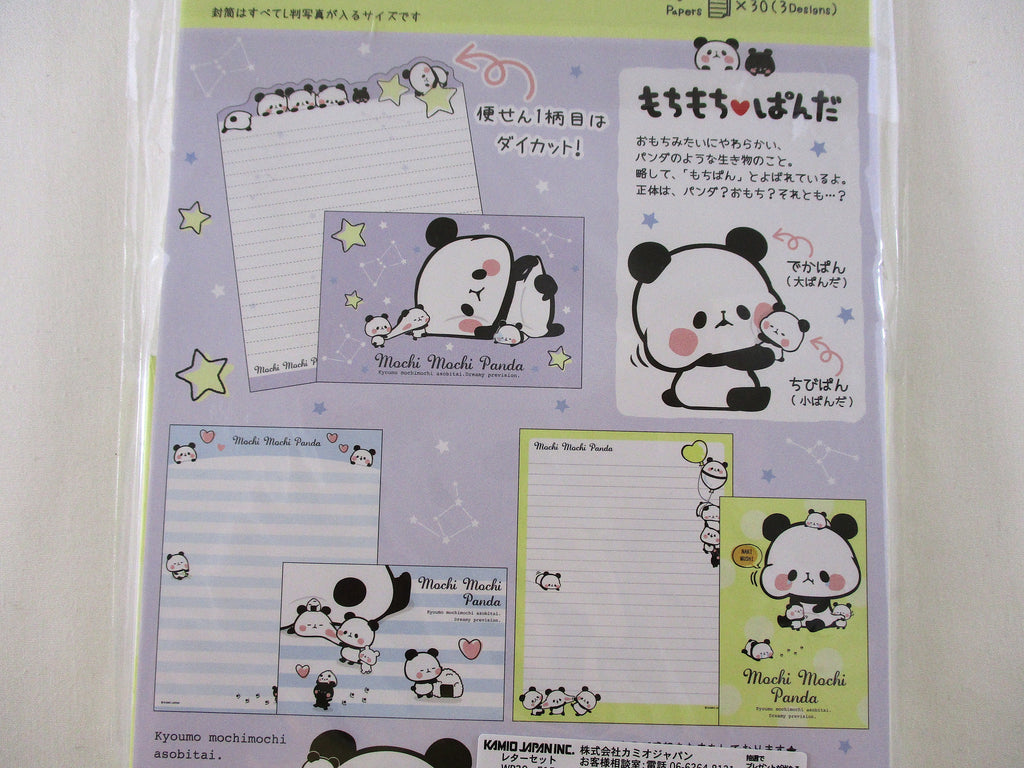 封筒はすべてL判写真が入るサイズです
Papers ×30(3Designs)
便せん1柄目は
ダイカット!
もちもち♥ぱんだ
おもちみたいにやわらかい、
パンダのような生き物のこと。
略して、「もちぱん」とよばれているよ。
正体は、パンダ?おもち?それとも…?
でかぱん
(大ぱんだ)
ちびぱん
(小ぱんだ)
Mochi Mochi P
Mochi Mochi Panda
Kyoumo mochimochi asobitai.Dreamy prevision.
Mochi Mochi Panda
Mochi Mochi
Panda
Kyoumo mochimochi asobitai.
Dreamy prevision.
Mochi Mochi Panda
NAKI
MUSHI
Mochi Mochi
Panda
Kyoumo mochimochi asobitai.
Dreamy prevision.
Kyoumo mochimochi
asobitai.
KAMIO JAPAN INC. 株式会社カミオジャパン
レターセット お客様相談室:電話 06-6264-8121
抽選で